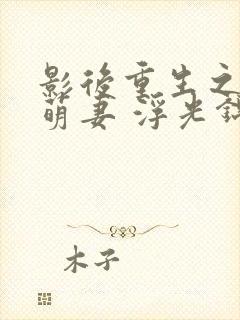 影後重生之
萌妻 浮光錦
木子